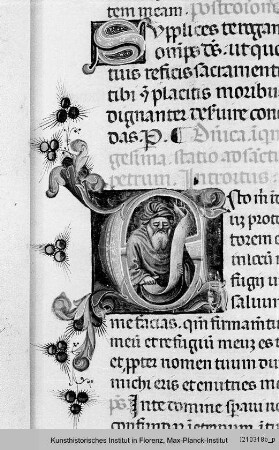 tem meam. postcoīonē
Supplices te rogam
om̄ps ds̄. ut quo
tuis reficis sacramentis
tibi &amp; placitis moribus
dignanter deſuire con
das. P.
Dn̄ica in q̄n
gesima. statio ad sanct
petrum. Introitus.
Esto m̄
prote
torem
fugii
saluum
me facias. qm̄ firmamtu
meū et refugiū meuʒ es t
et ꝓpter nomen tuum dux
michi eris et enutries me
ps̄ In te domine speraui nō
Kunsthistorisches Institut in Florenz, Max-Planck-Institut